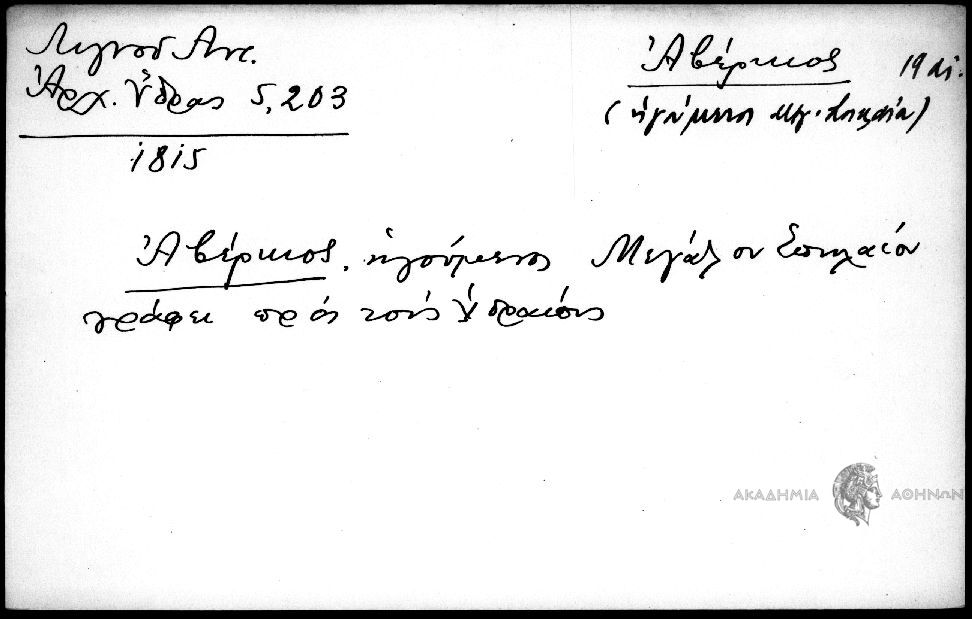 Λιγνοῦ Ἀντ.
Ἀρχ. Ὕδρας 5, 203
1815
Ἀβέρκιος 19 αἰ.
(ἡγούμενος Μεγ. Σπηλαίου)
Ἀβέρκιος, ἡγούμενος Μεγάλου Σπηλαίου
γράφει πρὸς τοὺς Ὑδραίους
ΑΚΑΔΗΜΙΑ ΑΘΗΝΩΝ